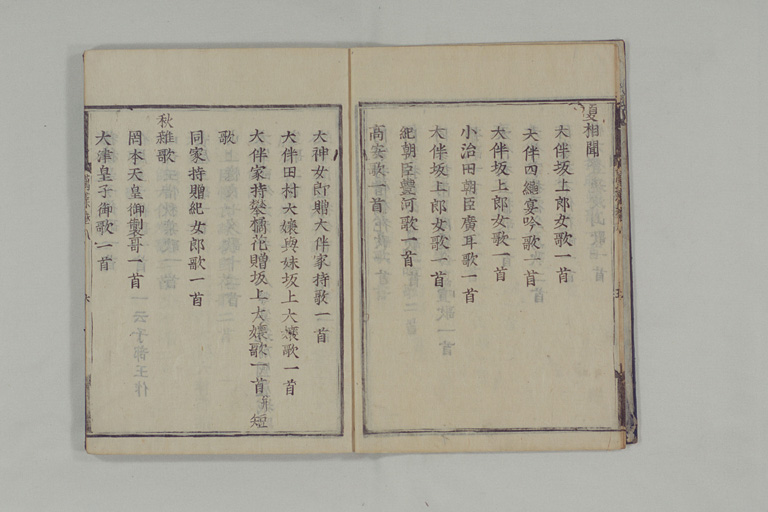 夏相聞
大伴坂上郎女歌一首
大伴四縄宴吟歌一首
大伴坂上郎女歌一首
小治田朝臣廣耳歌一首
大伴坂上郎女歌一首
紀朝臣豐河歌一首
高安歌一首
大神女郎贈大伴家持歌一首
大伴田村大嬢與妹坂上大嬢歌一首
大伴家持攀橘花贈坂上大嬢歌一首并短
歌
同家持贈紀女郎歌一首
秋雜歌
岡本天皇御製哥一首
大津皇子御歌一首